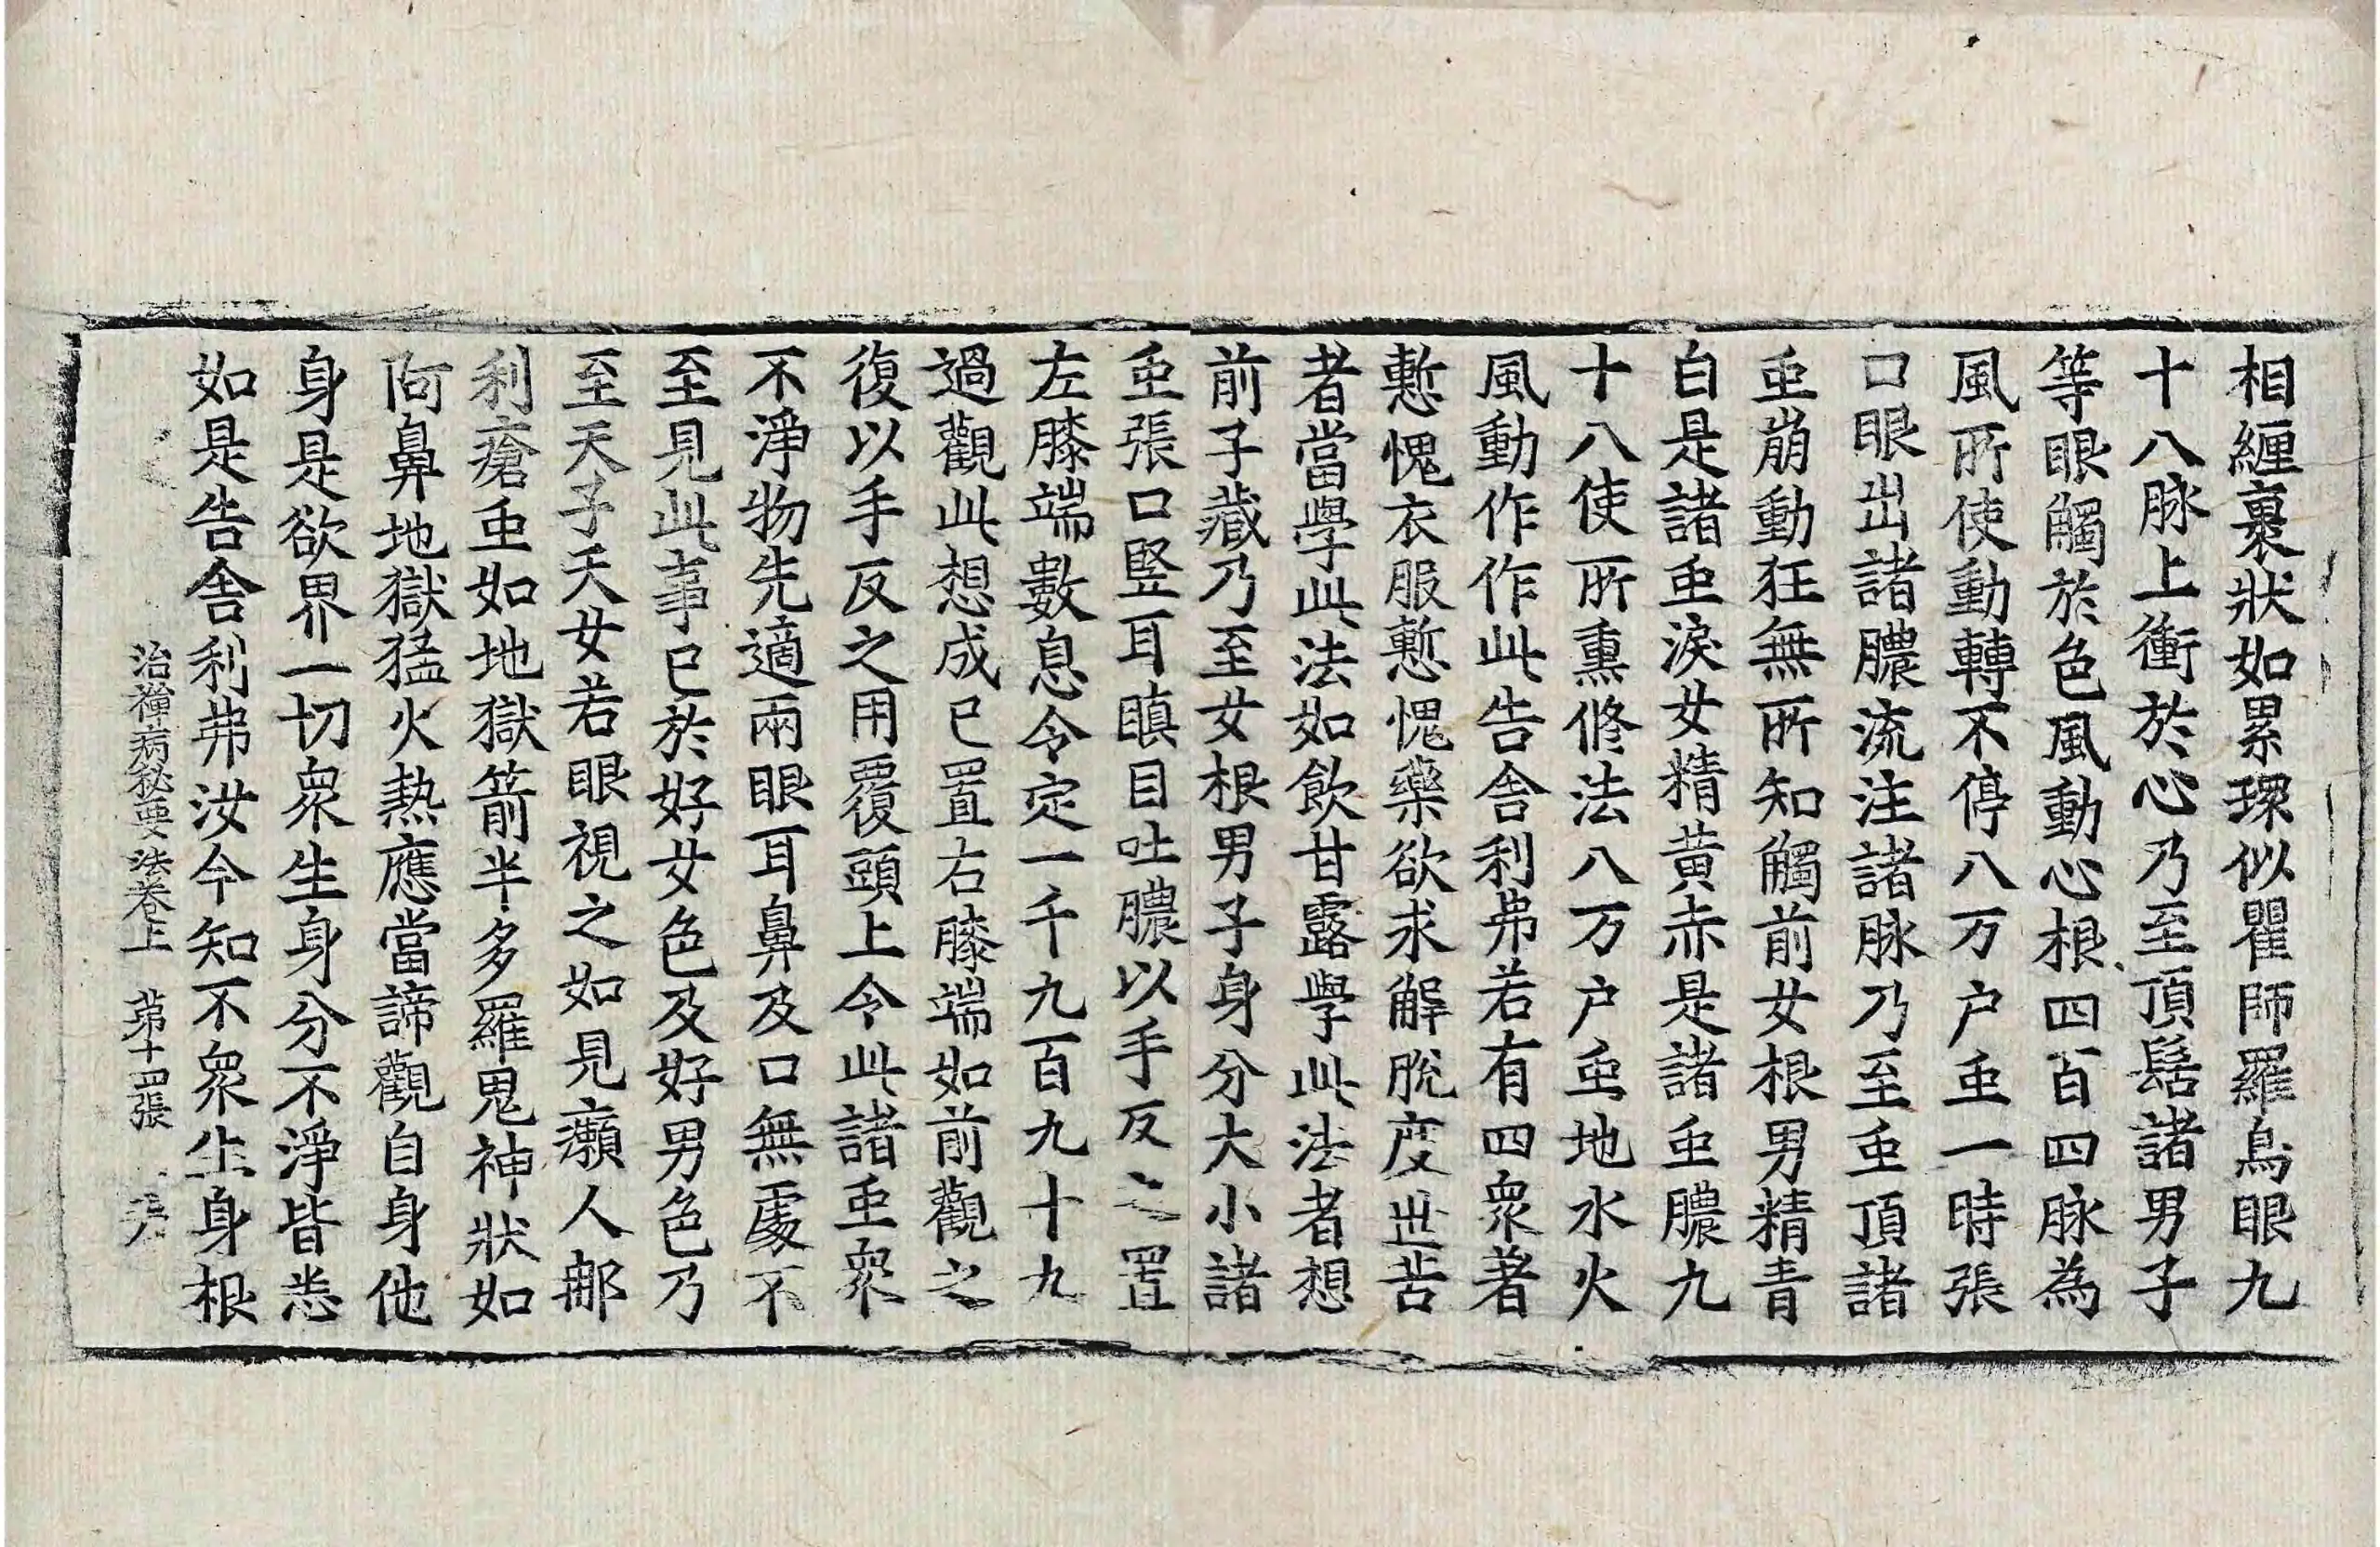 相纏裹狀如累環似瞿師羅鳥眼九
十八脉上衝於心乃至頂髻諸男子
等眼觸於色風動心根四百四脉為
風所使動轉不停八万户䖝一時張
口眼出諸膿流注諸脉乃至䖝頂諸
䖝崩動狂無所知觸前女根男精青
白是諸䖝淚女精黄赤是諸䖝膿九
十八使所熏修法八万户䖝地水火
風動作作此告舍利弗若有四衆著
慙愧衣服慙愧藥欲求解脫度世苦
者當學此法如飲甘露學此法者想
前子藏乃至女根男子身分大小諸
䖝張口竪耳瞋目吐膿以手反之置
左膝端數息令定一千九百九十九
過觀此想成已置右膝端如前觀之
復以手反之用覆頭上令此諸䖝衆
不淨物先適兩眼耳鼻及口無處不
至見此事已於好女色及好男色乃
至天子天女若眼視之如見癩人那
利瘡䖝如地獄箭半多羅鬼神狀如
阿鼻地獄猛火熱應當諦觀自身他
身是欲界一切衆生身分不淨皆悉
如是告舍利弗汝今知不衆生身根
治禪病秘要法卷上 第十四張